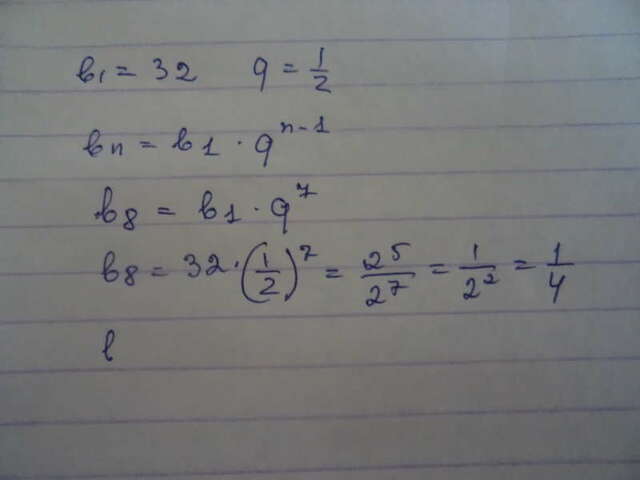 b₁ = 32 q = 1/2
bn = b1 · q^(n-1)
b₈ = b1 · q^7
b8 = 32 · (1/2)^7 = 2^5/2^7 = 1/2^2 = 1/4